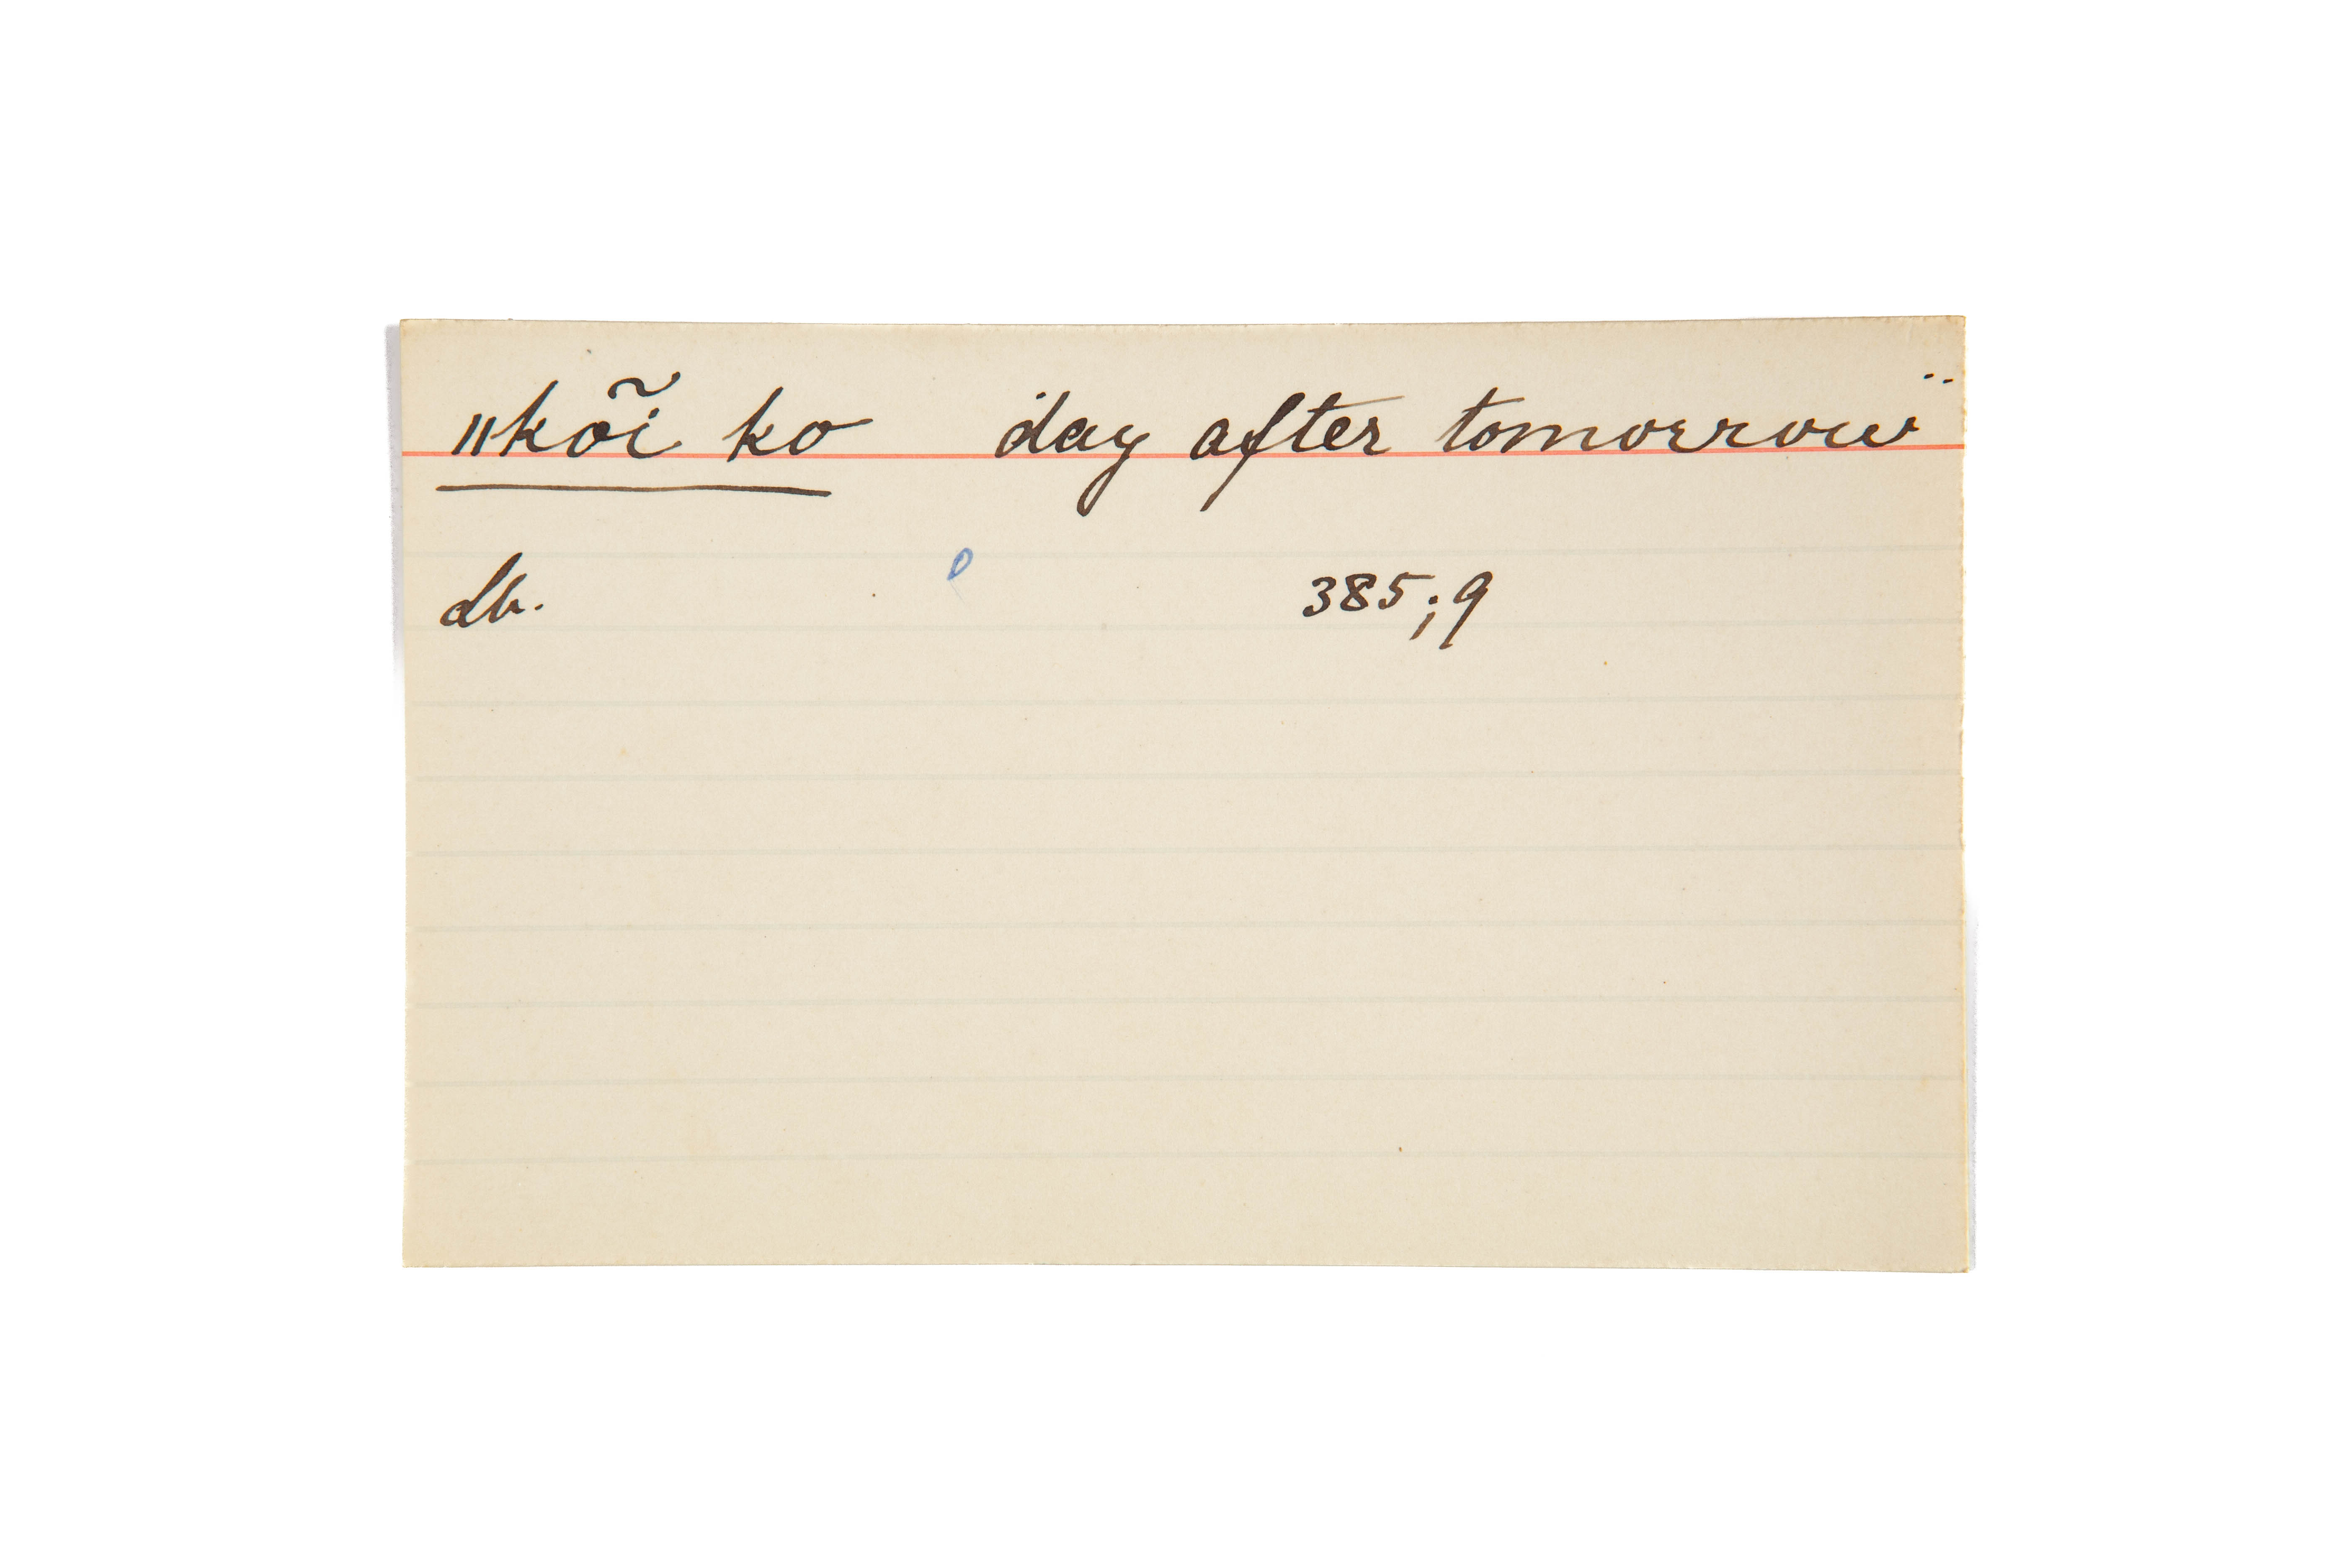 ǁkõi ko day after tomorrow
Lb. 385;9